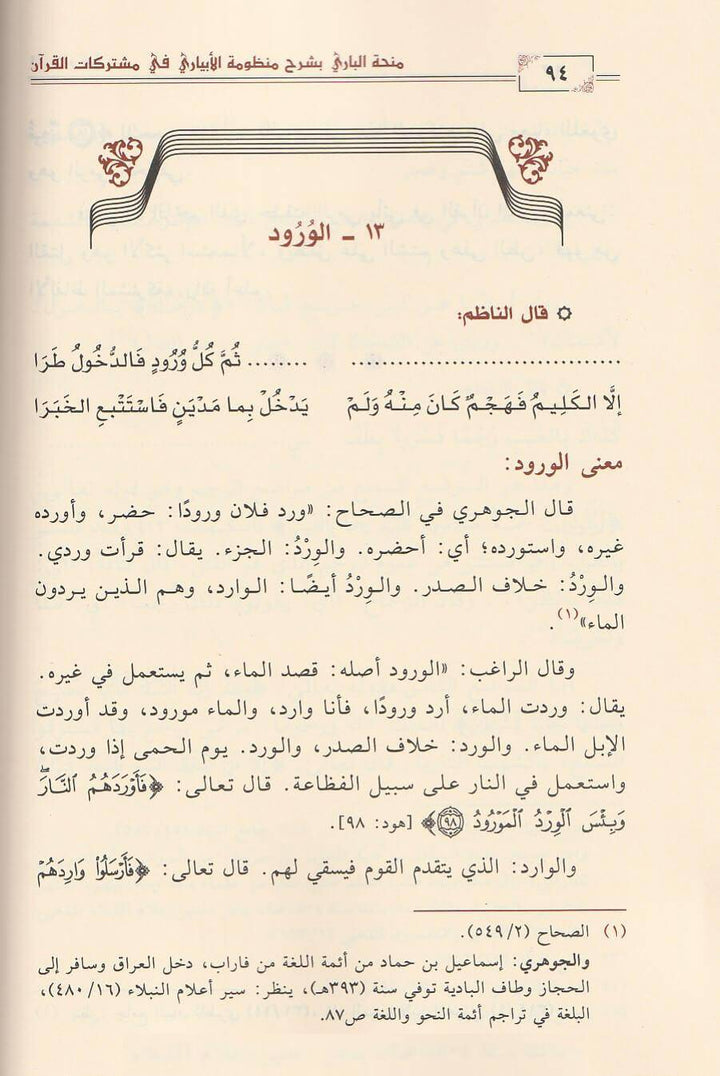 ٩٤
منحة الباري بشرح منظومة الأبياري في مشتركات القرآن
١٣ - الوُرُود
۞ قال الناظم:
................................ ... ........ ثُمَّ كُلُّ وُرُودٍ فَالدُّخُولُ طَرَا
إلَّا الكَلِيمُ فَهَجْمٌ كَانَ مِنْهُ وَلَمْ يَدْخُلْ بِما مَدْيَنٍ فَاسْتَتْبِعِ الخَبَرَا
معنى الورود:
قال الجوهري في الصحاح: «ورد فلان ورودًا: حضر، وأورده
غيره، واستورده؛ أي: أحضره. والوِرْدُ: الجزء. يقال: قرأت وردي.
والوِرْدُ: خلاف الصدر. والوِرْدُ أيضًا: الوارد، وهم الذين يردون
الماء»(١).
وقال الراغب: «الورود أصله: قصد الماء، ثم يستعمل في غيره.
يقال: وردت الماء، أرد ورودًا، فأنا وارد، والماء مورود، وقد أوردت
الإبل الماء. والورد: خلاف الصدر، والورد. يوم الحمى إذا وردت،
واستعمل في النار على سبيل الفظاعة. قال تعالى: ﴿فَأَوْرَدَهُمُ ٱلنَّارَۖ
وَبِئْسَ ٱلْوِرْدُ ٱلْمَوْرُودُ ٩٨﴾ [هود: ٩٨].
والوارد: الذي يتقدم القوم فيسقي لهم. قال تعالى: ﴿فَأَرْسَلُوا۟ وَارِدَهُمْ
(١) الصحاح (٥٤٩/٢).
والجوهري: إسماعيل بن حماد من أئمة اللغة من فاراب، دخل العراق وسافر إلى
الحجاز وطاف البادية توفي سنة (٣٩٣هـ)، ينظر: سير أعلام النبلاء (٤٨٠/١٦)،
البلغة في تراجم أئمة النحو واللغة ص٨٧.